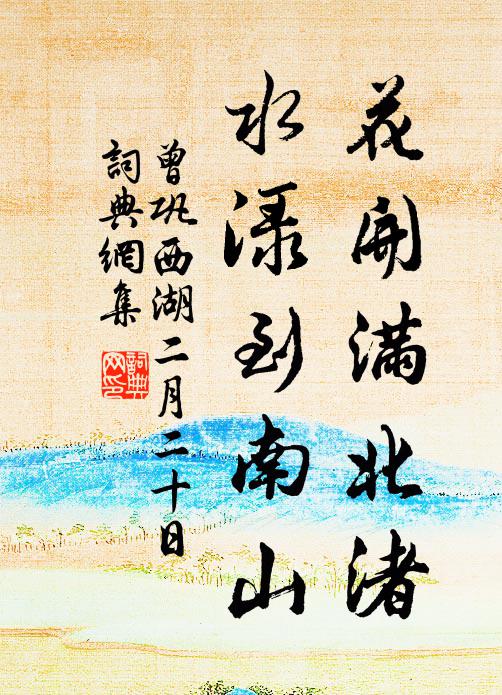 花開滿北渚
水渌到南山
曾巩西湖二月二十日
詞典網集
詞典
网印